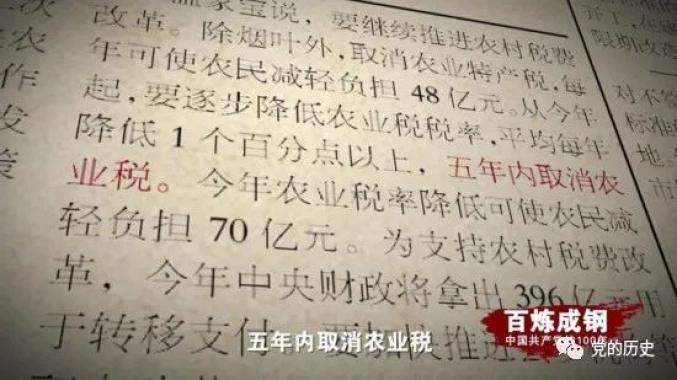 家宝说，要继续推进农村税费
改革。除烟叶外，取消农业特产税，每
年可使农民减轻负担 48 亿元。从今年
起，要逐步降低农业税税率，平均每年
降低 1 个百分点以上，五年内取消农
业税。今年农业税率降低可使农民减
轻负担 70 亿元。为支持农村税费改
革，今年中央财政将拿出 396 亿元用
于转移支付
次
农
作
发
策
限期改造
对不
标准
地
市
五年内取消农业税
百炼成钢
中国共产党的100年
党的历史